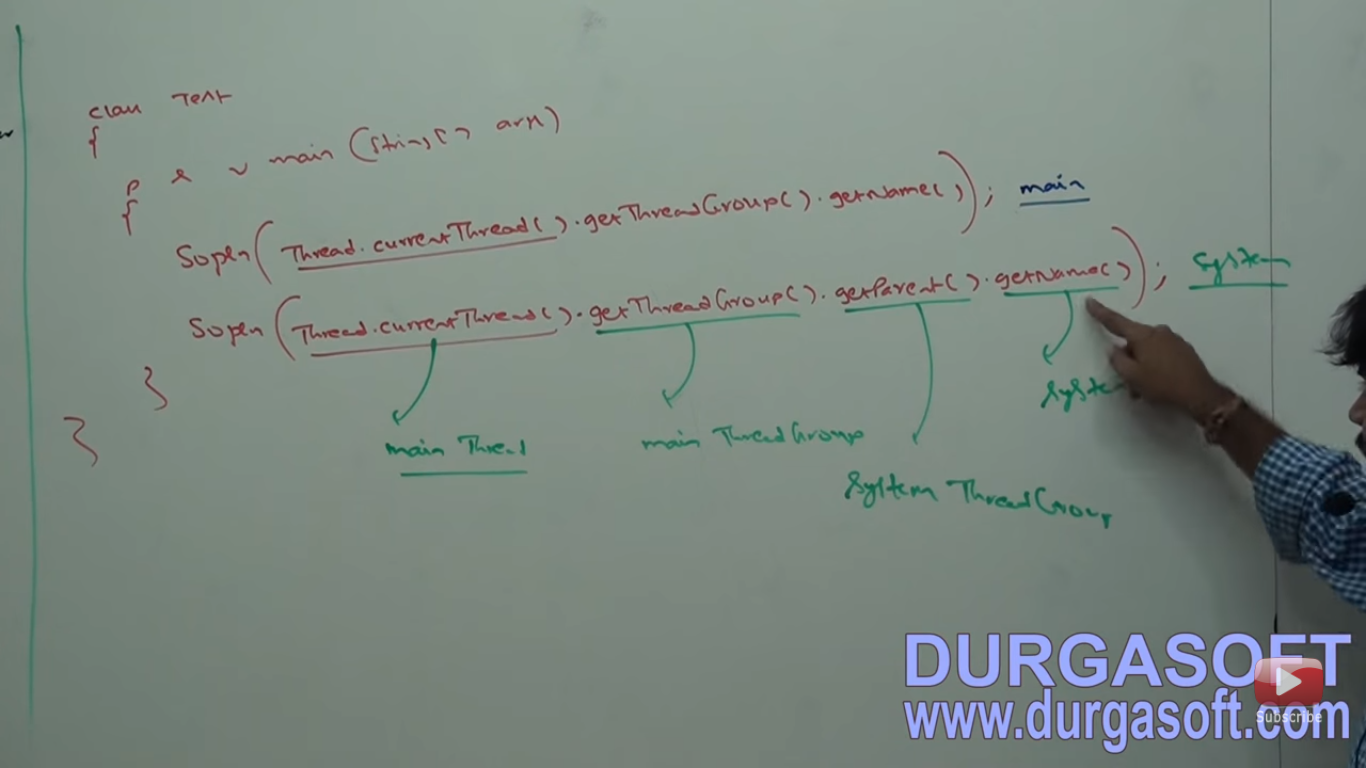 class Test
{
p s v main (String[] args)
{
Sopln(Thread.currentThread().getThreadGroup().getName()); main
Sopln(Thread.currentThread().getThreadGroup().getParent().getName()); System
}
}
main Thread
main ThreadGroup
System ThreadGroup
Syste
DURGASOFT
www.durgasoft.com
Subscribe